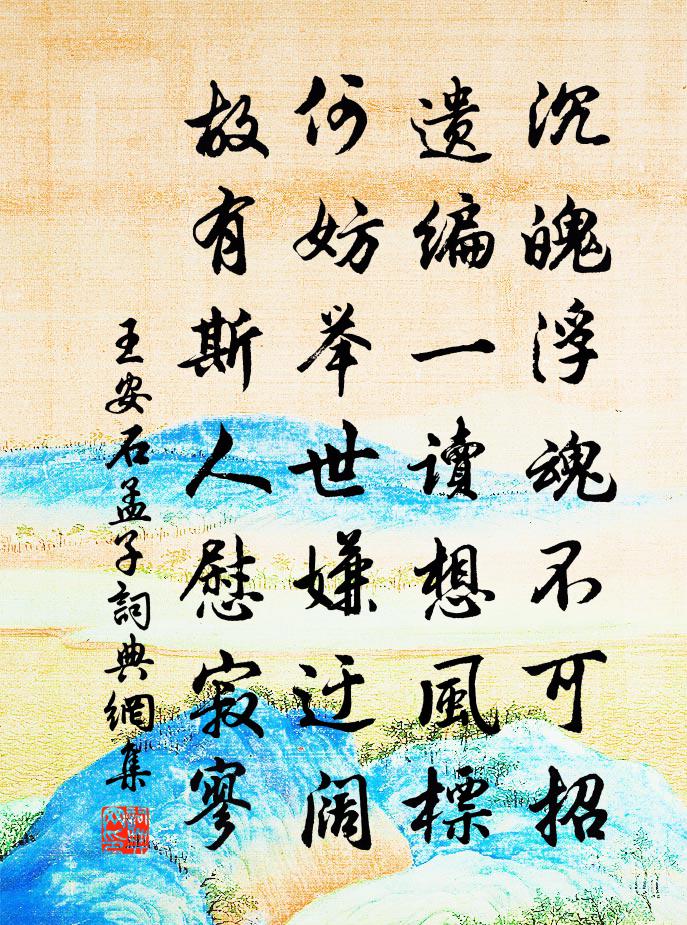 沉魄浮魂不可招
遗编一读想風標
何妨举世嫌迂阔
故有斯人慰寂寥
王安石孟子詞典網集